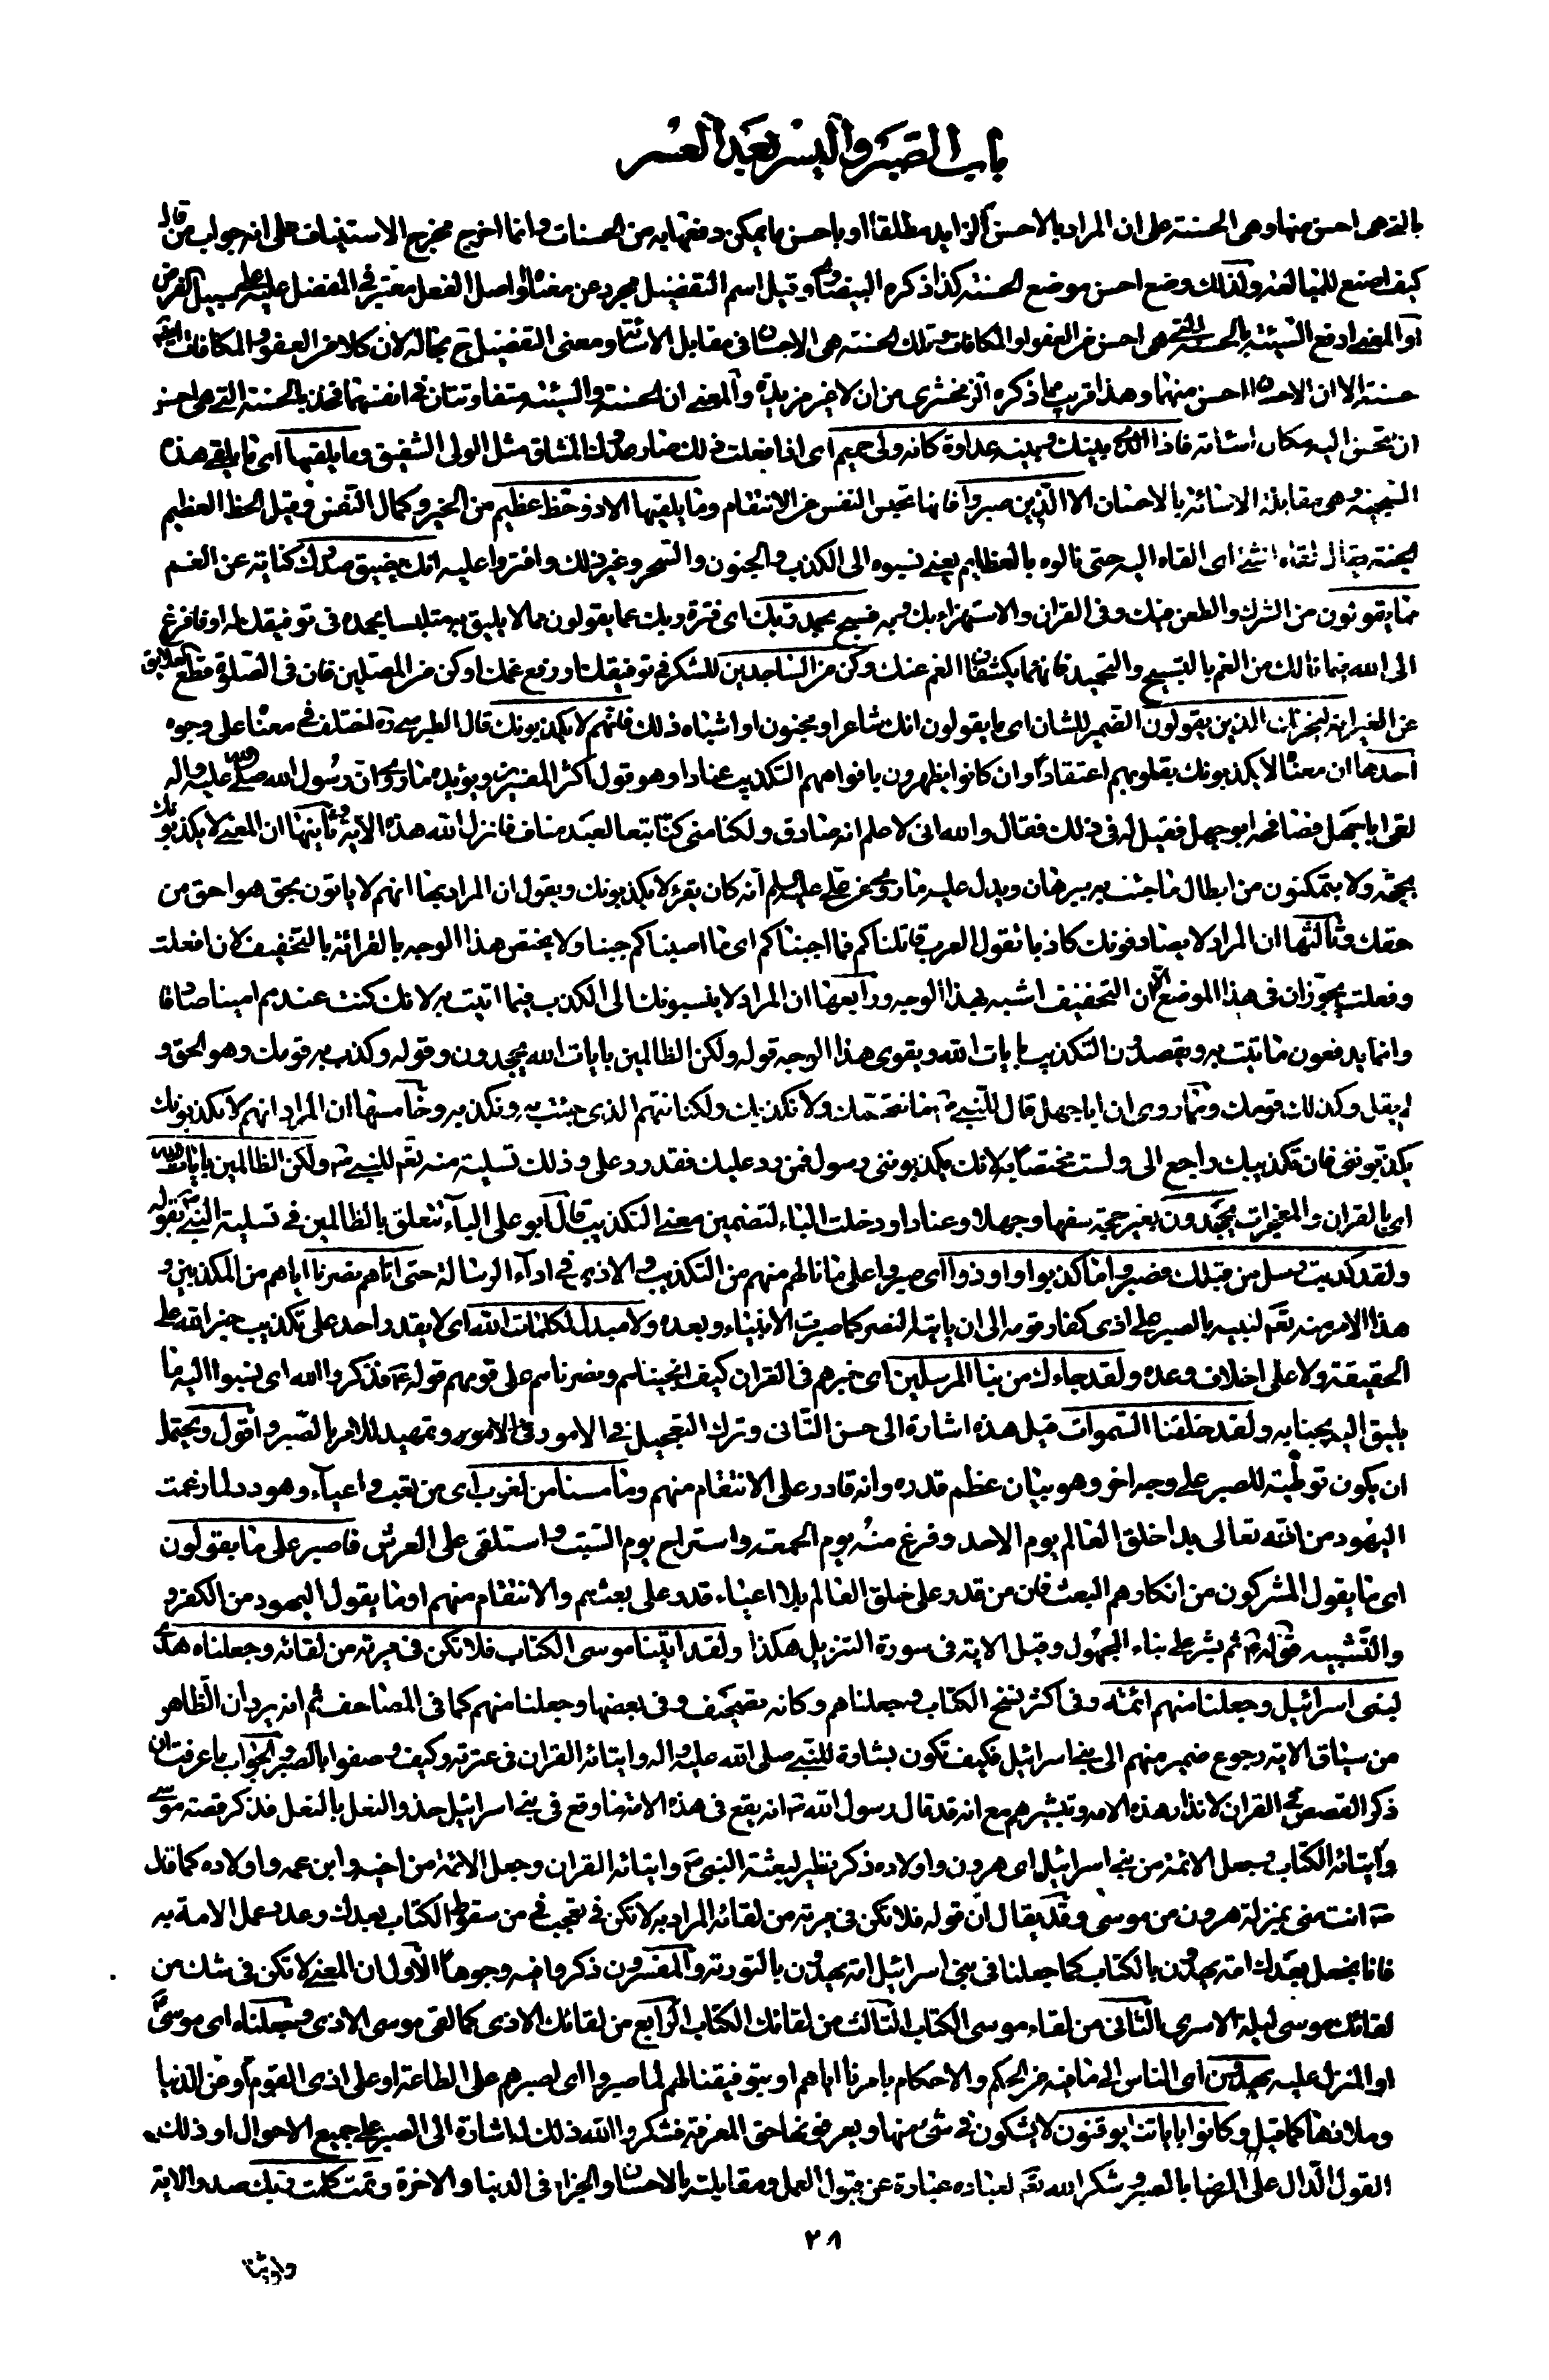 باب الصبر واليسر بعد العسر
بالتي هي احسن منها وهي الحسنة على ان المراد بالاحسن الزايد مطلقا او باحسن ما يمكن دفعها به من الحسنات وانما اخرج مخرج الاستيناف على انه جواب من قال
كيف اصنع للمبالغة ولذلك وضع احسن موضع الحسنة كذا ذكره البيضاوي وقيل اسم التفضيل مجرد عن معناه او اصل الفعل معتبر في المفضل عليه على سبيل الفرض
او المعنى ادفع السيئة بالحسنة التي هي احسن من العفو او المكافات وتلك الحسنة هي الاحسان في مقابل الاسائة ومعنى التفضيل ح بحاله لان كلا من العفو والمكافات ايضا
حسنة الا ان الاحسان احسن منهما وهذا قريب مما ذكره الزمخشري من ان لا غير مزيدة والمعنى ان الحسنة والسيئة متفاوتتان في انفسهما فخذ بالحسنة التي هي احسن
ان تحسن اليه مكان اسائته فاذا الذي بينك وبينه عداوة كانه ولي حميم اى اذا فعلت ذلك صار عدوك المشاق مثل الولي الشفيق وما يلقيها اى ما يلقى هذه
السجية وهي مقابلة الاسائة بالاحسان الا الذين صبروا فانها تحبس النفس من الانتقام وما يلقيها الا ذو حظ عظيم من الخير وكمال النفس وقيل الحظ العظيم
الجنة يقال لقاه الشئ اى القاه اليه حتى نالوه بالعظايم يعنى نسبوه الى الكذب والجنون والسحر وغير ذلك وافتروا عليه انك يضيق صدرك كناية عن الغم
بما يقولون من الشرك والطعن فيك وفى القران والاستهزاء بك وبه فسبح بحمد ربك اى فنزه ربك عما يقولون مما لا يليق به متلبسا بحمده فى توفيقك له او فافزع
الى الله فيما نالك من الغم بالتسبيح والتحميد فانهما يكشفان الغم عنك وكن من الساجدين للشكر في توفيقك او رفع غمك او كن من المصلين فان فى الصلوة قطع العلايق
عن الغير انه ليحزنك الذين يقولون الضمير للشان اى ما يقولون انك شاعر او مجنون او اشباه ذلك فانهم لا يكذبونك قال الطبرسي ره اختلف في معناه على وجوه
احدها ان معناه لا يكذبونك بقلوبهم اعتقادا وان كانوا يظهرون بافواههم التكذيب عنادا وهو قول اكثر المفسرين ويؤيده ما روى ان رسول الله صلى الله عليه واله
لقى ابا جهل فصافحه ابو جهل فقيل له فى ذلك فقال والله انى لاعلم انه صادق ولكنا متى كنا تبعا لعبد مناف فانزل الله هذه الاية وثانيها ان المعنى لا يكذبونك
بحجة ولا يتمكنون من ابطال ما جئت به ببرهان ويدل عليه ما روى عن على عليه السلم انه كان يقرء لا يكذبونك ويقول ان المراد بها انهم لا ياتون بحق هو احق من
حقك وثالثها ان المراد لا يصادفونك كاذبا تقول العرب قاتلناكم فما اجبناكم اى ما اصبناكم جبنا ولا يختص هذا الوجه بالقرائة بالتخفيف لان افعلت
وفعلت يجوزان فى هذا الموضع الا ان التخفيف اشبه بهذا الوجه ورابعها ان المراد لا ينسبونك الى الكذب فيما اتيت به لانك كنت عندهم امينا صادقا
وانما يدفعون ما اتيت به ويقصدون التكذيب بايات الله ويقوى هذا الوجه قوله ولكن الظالمين بايات الله يجحدون وقوله وكذب به قومك وهو الحق و
لم يقل وكذلك قومك وما روى ان ابا جهل قال للنبي ص ما نتهمك ولا نكذبك ولكنا نتهم الذى جئت به ونكذبه وخامسها ان المراد انهم لا يكذبونك بل
يكذبوننى فان تكذيبك راجع الى ولست مختصا به لانك رسول فمن رد عليك فقد رد على وذلك تسلية منه تعالى للنبي ص ولكن الظالمين بايات الله
اى بالقران والمعجزات يجحدون بغير حجة سفها وجهلا وعنادا ودخلت الباء لتضمين معنى التكذيب قال ابو على الباء تتعلق بالظالمين ثم زاد في تسلية النبي ص بقوله
ولقد كذبت رسل من قبلك فصبروا على ما كذبوا واوذوا اى صبروا على ما نالهم منهم من التكذيب والاذى في اداء الرسالة حتى اتاهم نصرنا اياهم من المكذبين و
هذا الامر منه تعم لنبيه بالصبر على اذى كفار قومه الى ان ياتيه النصر كما صبرت الانبياء وبعده ولا مبدل لكلمات الله اى لا يقدر احد على تكذيب خبر الله على
الحقيقة ولا على اخلاف وعده ولقد جاءك من نبا المرسلين اى خبرهم فى القران كيف انجيناهم ونصرناهم على قومهم قوله ع فذكروا الله اى نسبوا اليه ما لا
يليق اليه بجنابه ولقد خلقنا السموات قيل هذه اشارة الى حسن التانى وترك التعجيل في الامور وتمهيد للامر بالصبر واقول ويحتمل
ان يكون توطئة للصبر على وجه اخر وهو بيان عظم قدره وانه قادر على الانتقام منهم وما مسنا من لغوب اى من تعب واعياء وهو رد لما زعمت
اليهود من انه تعالى بدا خلق العالم يوم الاحد وفرغ منه يوم الجمعة واستراح يوم السبت واستلقى على العرش فاصبر على ما يقولون
اى ما يقول المشركون من انكارهم البعث فان من قدر على خلق العالم بلا اعياء قدر على بعثهم والانتقام منهم او ما يقول اليهود من الكفر و
والتشبيه قوله ع ثم بشر على بناء المجهول وقيل الاية فى سورة التنزيل هكذا ولقد اتينا موسى الكتاب فلا تكن فى مرية من لقائه وجعلناه هدى
لبنى اسرائيل وجعلنا منهم ائمة وفى اكثر نسخ الكتاب وجعلناهم وكانه تصحيف وفى بعضها وجعلنا منهم كما فى المصاحف ثم انه يرد ان الظاهر
من سياق الاية رجوع ضمير منهم الى بنى اسرائيل فكيف تكون بشارة للنبي صلى الله عليه واله وايتائه القران فى عترته وكيف وصفوا بالصبر والجواب ما عرفت ان
ذكر القصص في القران لانذار هذه الامة وتبشيرهم مع انه قد قال رسول الله ص انه يقع فى هذه الامة ما وقع فى بنى اسرائيل حذو النعل بالنعل فذكر قصة موسى
وايتائه الكتاب وجعل الائمة من بنى اسرائيل اى هرون واولاده ذكر نظير لبعثة النبى ص وايتائه القران وجعل الائمة من اخيه وابن عمه واولاده كما قال
ص انت منى بمنزلة هرون من موسى وقد يقال ان قوله فلا تكن فى مرية من لقائه المراد به لا تكن في تعجب من سقوط الكتاب بعدك وعدم عمل الامة به
فانا نجعل بعدك امة يهدون بالكتاب كما جعلنا فى بنى اسرائيل امة يهدون بالتورية والمفسرون ذكروا فيه وجوها الاول ان المعنى لا تكن فى شك من
لقائك موسى ليلة الاسرى الثانى من لقاء موسى الكتاب الثالث من لقائك الكتاب الرابع من لقائك الاذى كما لقى موسى الاذى وجعلناه اى موسى ع
او المنزل عليه يهدون اى الناس الى ما فيه من الحكم والاحكام بامرنا اياهم او بتوفيقنا لهم لما صبروا اى لصبرهم على الطاعة او على اذى القوم او عن الدنيا
وملاذها كما قيل وكانوا باياتنا يوقنون لا يشكون في شئ منها ويعرفونها حق المعرفة فشكر الله ذلك له اشارة الى الصبر على جميع الاحوال او ذلك
القول الدال على الرضا بالصبر وشكر الله تعم لعباده عبارة عن قبول العمل ومقابلته بالاحسان والجزاء فى الدنيا والاخرة وتمت كلمت ربك صدر الاية
٢٨
واورثنا